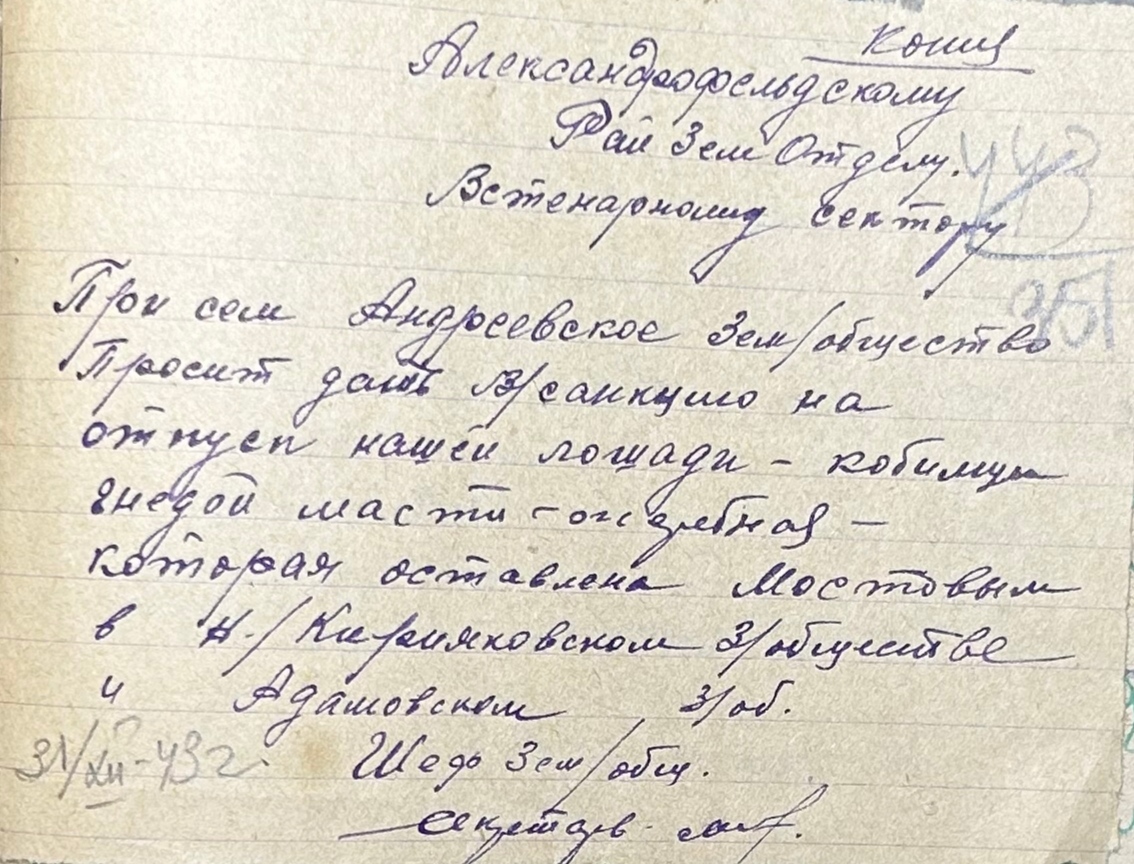 Копия
Александрофельдскому
Рай Зем Отделу.
Ветенарному сектору
443
351
При сем Андреевское Зем/общество
Просит дать В/санкцию на
отпуск нашей лошади - кобилицы
гнедой масти - ожеребная -
которая оставлена Мостовым
в Н./Кирияковском З/обществе
и Адамовском З/об.
31/XII-43 г. Шеф Зем/общ.
Секретарь